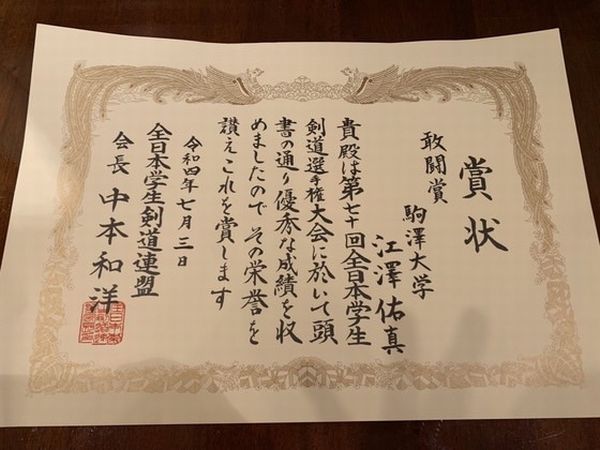 賞状
敢闘賞
駒澤大学
江澤佑真
貴殿は第七十回全日本学生
剣道選手権大会に於いて頭
書の通り優秀な成績を収
めましたのでその栄誉を
讃えこれを賞します
令和四年七月三日
全日本学生剣道連盟
会長 中本和洋